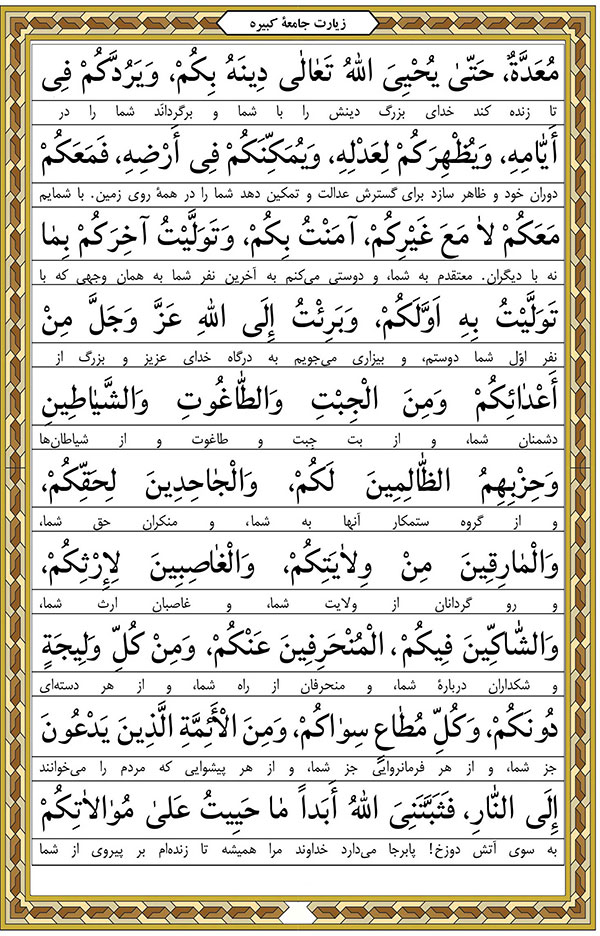 زیارت جامعهٔ کبیره
مُعَدَّةٌ، حَتّىٰ يُحْيِيَ اللهُ تَعَالٰى دِينَهُ بِكُمْ، وَيَرُدَّكُمْ فِى
تا زنده کند خدای بزرگ دینش را با شما و برگردانَد شما را در
أَيّٰامِهِ، وَيُظْهِرَكُمْ لِعَدْلِهِ، وَيُمَكِّنَكُمْ فِى أَرْضِهِ، فَمَعَكُمْ
دوران خود و ظاهر سازد برای گسترش عدالت و تمکین دهد شما را در همهٔ روی زمین. با شمایم
مَعَكُمْ لاٰ مَعَ غَيْرِكُمْ، آمَنْتُ بِكُمْ، وَتَوَلَّيْتُ آخِرَكُمْ بِمٰا
نه با دیگران. معتقدم به شما، و دوستی می‌کنم به آخرین نفر شما به همان وجهی که با
تَوَلَّيْتُ بِهِ اَوَّلَكُمْ، وَبَرِئْتُ إِلَى اللهِ عَزَّ وَجَلَّ مِنْ
نفر اوّل شما دوستم، و بیزاری می‌جویم به درگاه خدای عزیز و بزرگ از
أَعْدٰائِكُمْ وَمِنَ الْجِبْتِ وَالطّٰاغُوتِ وَالشَّيٰاطِينِ
دشمنان شما، و از بت جِبت و طاغوت و از شیاطان‌ها
وَحِزْبِهِمُ الظّٰالِمِينَ لَكُمْ، وَالْجٰاحِدِينَ لِحَقِّكُمْ،
و از گروه ستمکار آنها به شما، و منکران حق شما،
وَالْمٰارِقِينَ مِنْ وِلاٰيَتِكُمْ، وَالْغٰاصِبِينَ لِإِرْثِكُمْ،
و رو گردانان از ولایت شما، و غاصبان ارث شما،
وَالشّٰاكِّينَ فِيكُمْ، الْمُنْحَرِفِينَ عَنْكُمْ، وَمِنْ كُلِّ وَلِيجَةٍ
و شکداران دربارهٔ شما، و منحرفان از راه شما، و از هر دسته‌ای
دُونَكُمْ، وَكُلِّ مُطٰاعٍ سِوٰاكُمْ، وَمِنَ الْأَئِمَّةِ الَّذِينَ يَدْعُونَ
جز شما، و از هر فرمانروایی جز شما، و از هر پیشوایی که مردم را می‌خوانند
إِلَى النّٰارِ، فَثَبَّتَنِىَ اللهُ أَبَداً مٰا حَيِيتُ عَلىٰ مُوٰالاٰتِكُمْ
به سوی آتش دوزخ! پابرجا می‌دارد خداوند مرا همیشه تا زنده‌ام بر پیروی از شما